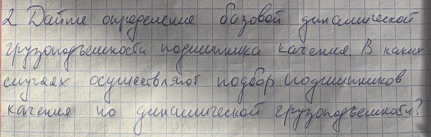 2 Дайте определение базовой динамической
грузоподъемности подшипника качения. В каких
случаях осуществляют подбор подшипников
качения по динамической грузоподъемности?